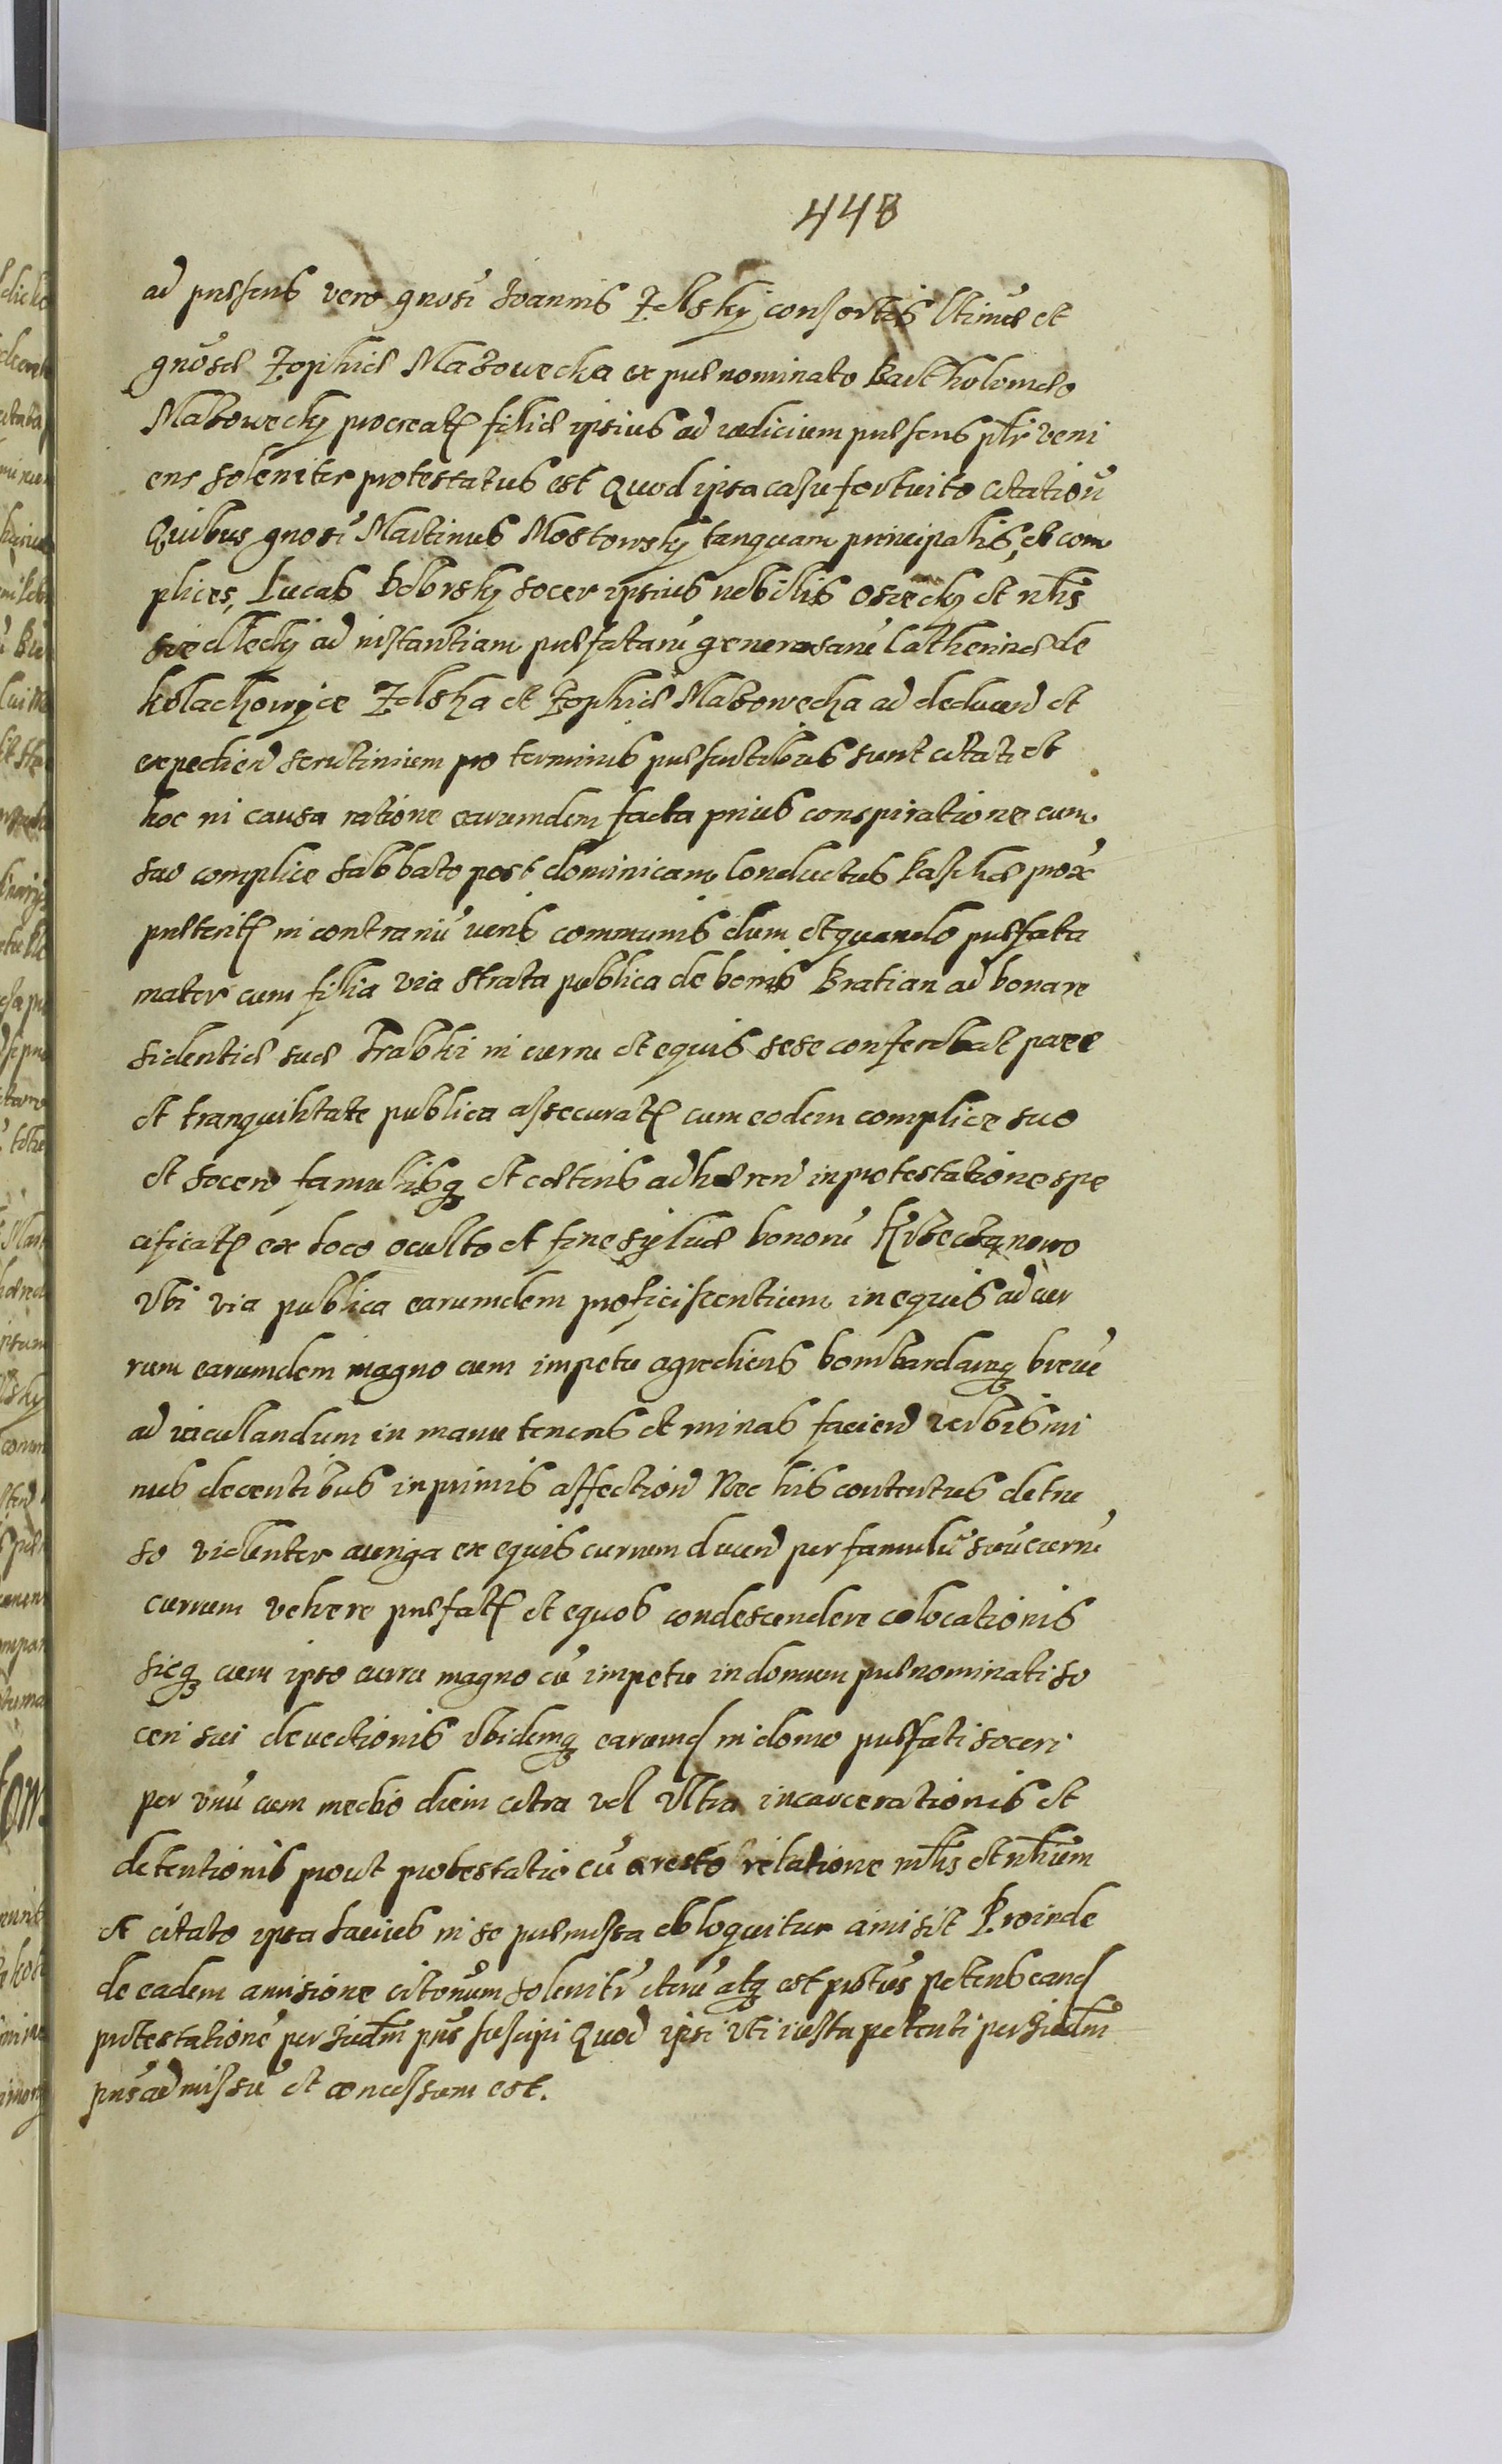 448
ad praesens vero gnosi Joannis Zelsky consortis ltimae et
gnosae Zophiae Mazowecka ex praenominato Bartholomeo
Mazowecky procreat filiae ipsius ad iudicium praesens plr veni
ens soleniter protestatus est Quod ipsa casu fortuito citationū
Quibus gnosi Martinus Mostowsky tanquam principalis, et com
plices, Lucas Dobrsky socer ipsius nobilis Osiecky et nblis
siedlecky ad instantiam praefatarū generosarū Catherinae de
kolachowyce Zelska et Zophiae Mazowecka ad deducend et
expediend scrutinium pro terminis praesentibus sunt citati et
hoc in causa ratione earumdem facta prius conspiratione cum
suo complice sabbato post dominicam Conductus Paschae prox
praeterit in contrariū iuris communis dum et quando praefata
mater cum filia via strata publica de bonis Bratian ad bona re
sidentiae suae Trabki in curru et equis sese conferebat pace
et tranquilitate publica assecurat cum eodem complice suo
et socero famulisq et caeteris adhaerend in protestatione spe
cificat ex loco oculto et fine sylvae bonorū
Ubi via publica earumdem proficiscentium in equis ad cur
rum earumdem magno cum impetu agrediens bombardamq brevē
ad iaculandum in manu tenens et minas faciend verbis mi
nus decentibus inprimis affectiond Nec his contentus detru
so violenter auriga ex equis currum ducend per famulū suū
currum vehere praefat et equos condescendere colocationis
sicq cum ipso curru magno cū impetu in domum praenominati so
ceri sui devectionis Ubidemq earumd in domo praefati soceri
per unū cum medio diem citra vel ultra incarcerationis et
detentionis prout protestatio cū aresto relatione mlis et nlium
et citato ipsa lacius in se praemissa obloquitur amisit Proinde
de eadem amisione citonum solenitr iterū atq est protus petens eand
protestationē per Iudm pns suscipi Quod ipsi uti iusta petenti per Iudm
pns admissū et concessum est.